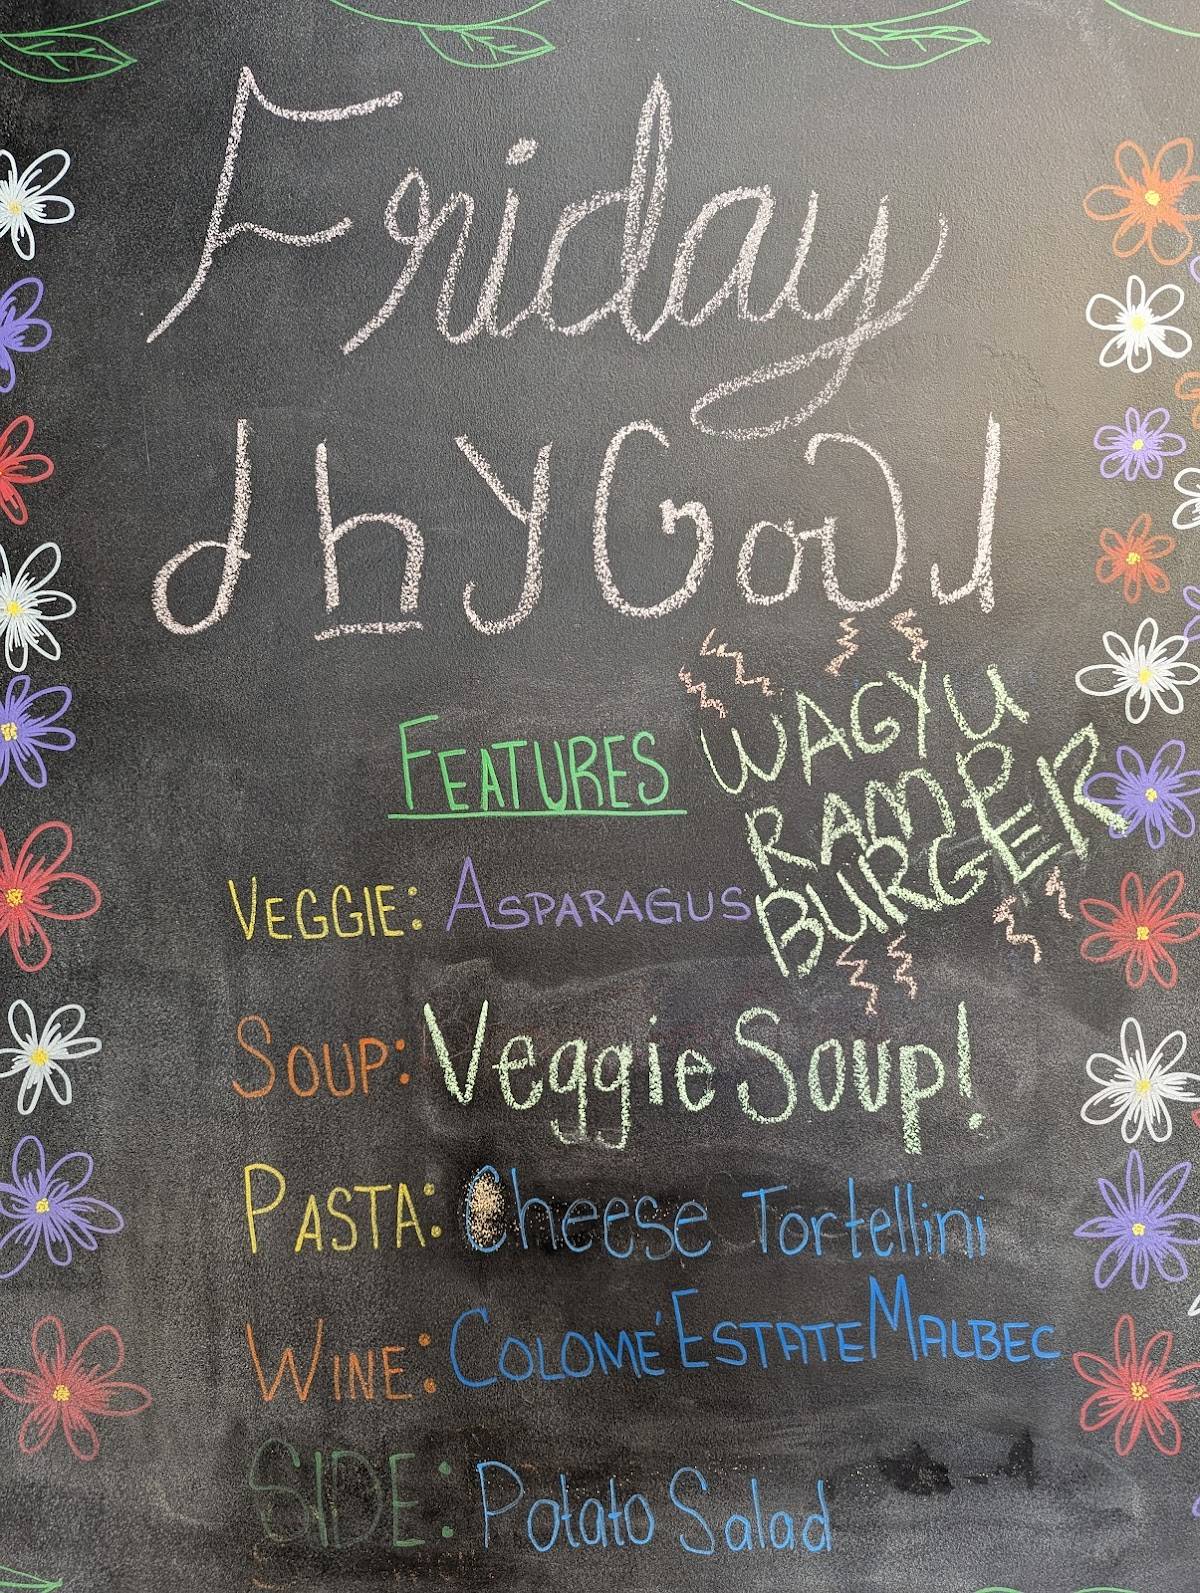 Friday
FEATURES
WAGYU
RAMP
BURGER
VEGGIE: ASPARAGUS
SOUP: Veggie Soup!
PASTA: Cheese Tortellini
WINE: COLOMÉ ESTATE MALBEC
SIDE: Potato Salad